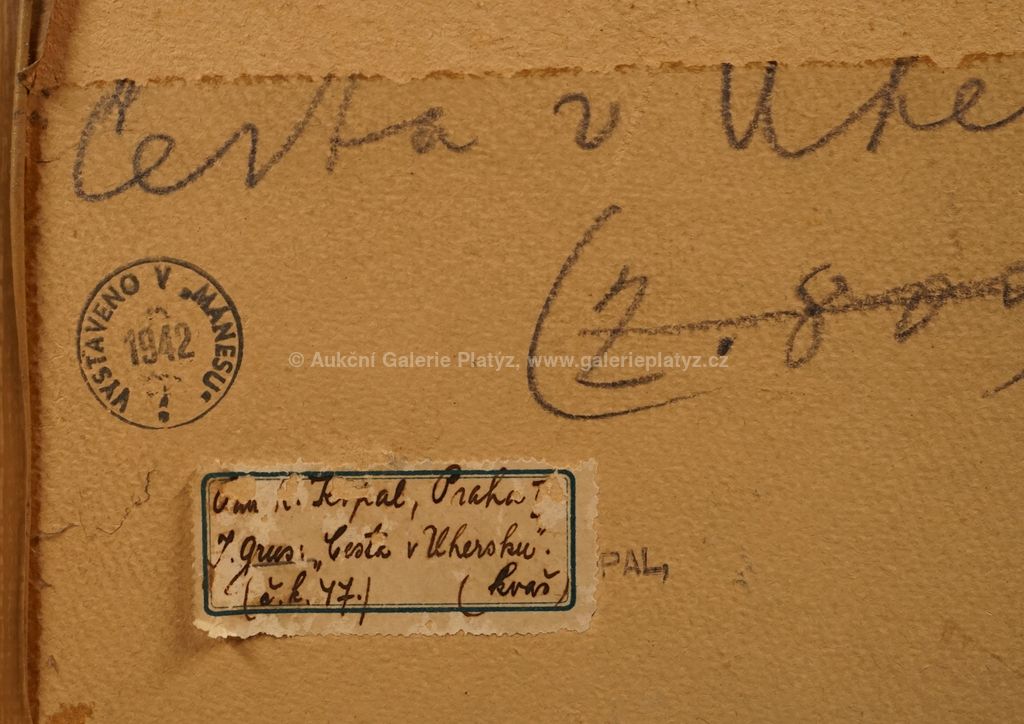 Cesta v Uhe
(Z.
VYSTAVENO V „MÁNESU“
1942
© Aukční Galerie Platýz, www.galerieplatyz.cz
Pan K. Kopal, Praha I
J. Grus: „Cesta v Uhersku“.
(č.k. 47.) (kvaš)
PAL,